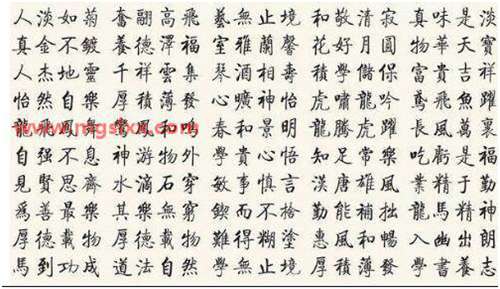 人淡如菊 奮翮高飛 藝無止境 和敬清寂 真味是淡
真金不鍍 養德澤福 室雅蘭馨 花好月圓 物華天寶
人杰地靈 千祥雲集 琴酒相壽 學儲保 富貴吉祥
怡然自樂 厚積薄發 心曠神怡 虎嘯龍吟 鳶飛魚躍
龍飛鳳舞 和鳴 春和景明 龍騰虎躍 長風萬裏
自强不息 神游物外 學貴心悟 知足常樂 吃虧是福
見賢思齊 水滴石穿 敏事慎言 漢唐雄風 業精于勤
爲善最樂 其樂無窮 鍥而不捨 勤能補拙 龍馬精神
厚德載物 厚德載物 難得糊塗 惠風和暢 入幽出朗
馬到功成 道法自然 學無止境 厚積薄發 學書養志